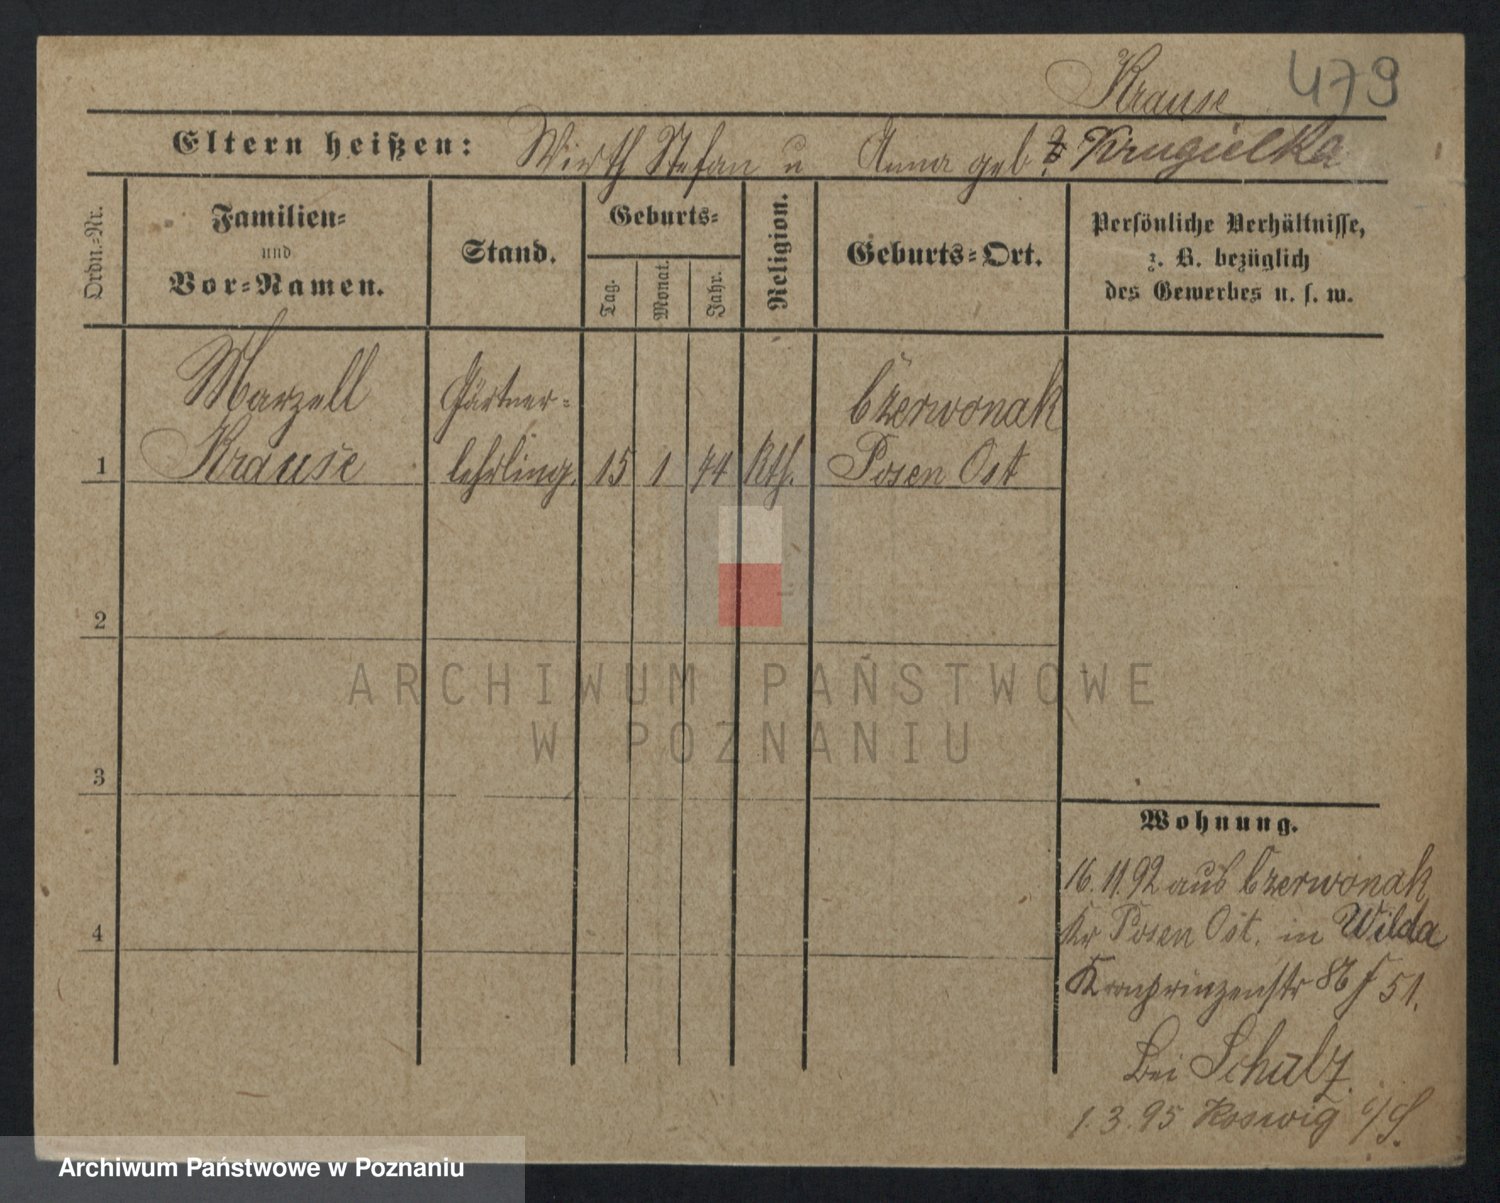 Krause 479
Eltern heißen: Wirth Stefan u Anna geb. Krugielka
Ordn.-Nr.
Familien-
und
Vor-Namen.
Stand.
Geburts-
Tag.
Monat.
Jahr.
Religion.
Geburts-Ort.
Persönliche Verhältnisse,
z. B. bezüglich
des Gewerbes u. s. w.
Marzell Gärtner- Czerwonak
1 Krause lehrling. 15 1 74 Kth. Posen Ost
2
3
4
Wohnung.
16.11.92 aus Czerwonak
Kr Posen Ost. in Wilda
Kronprinzenstr 86 51.
Bei Schulz.
1.3.95 Koswig
ARCHIWUM PAŃSTWOWE
W POZNANIU
Archiwum Państwowe w Poznaniu